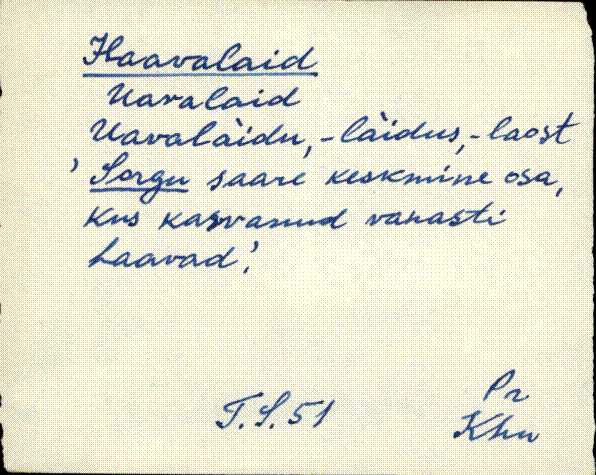 Haavalaid
Uavalaid
Uavalàidu, -làidus, -laost
'Sorgu saare keskmine osa,
kus kasvanud vanasti
haavad'.
T.S. 51
Pr
Khn